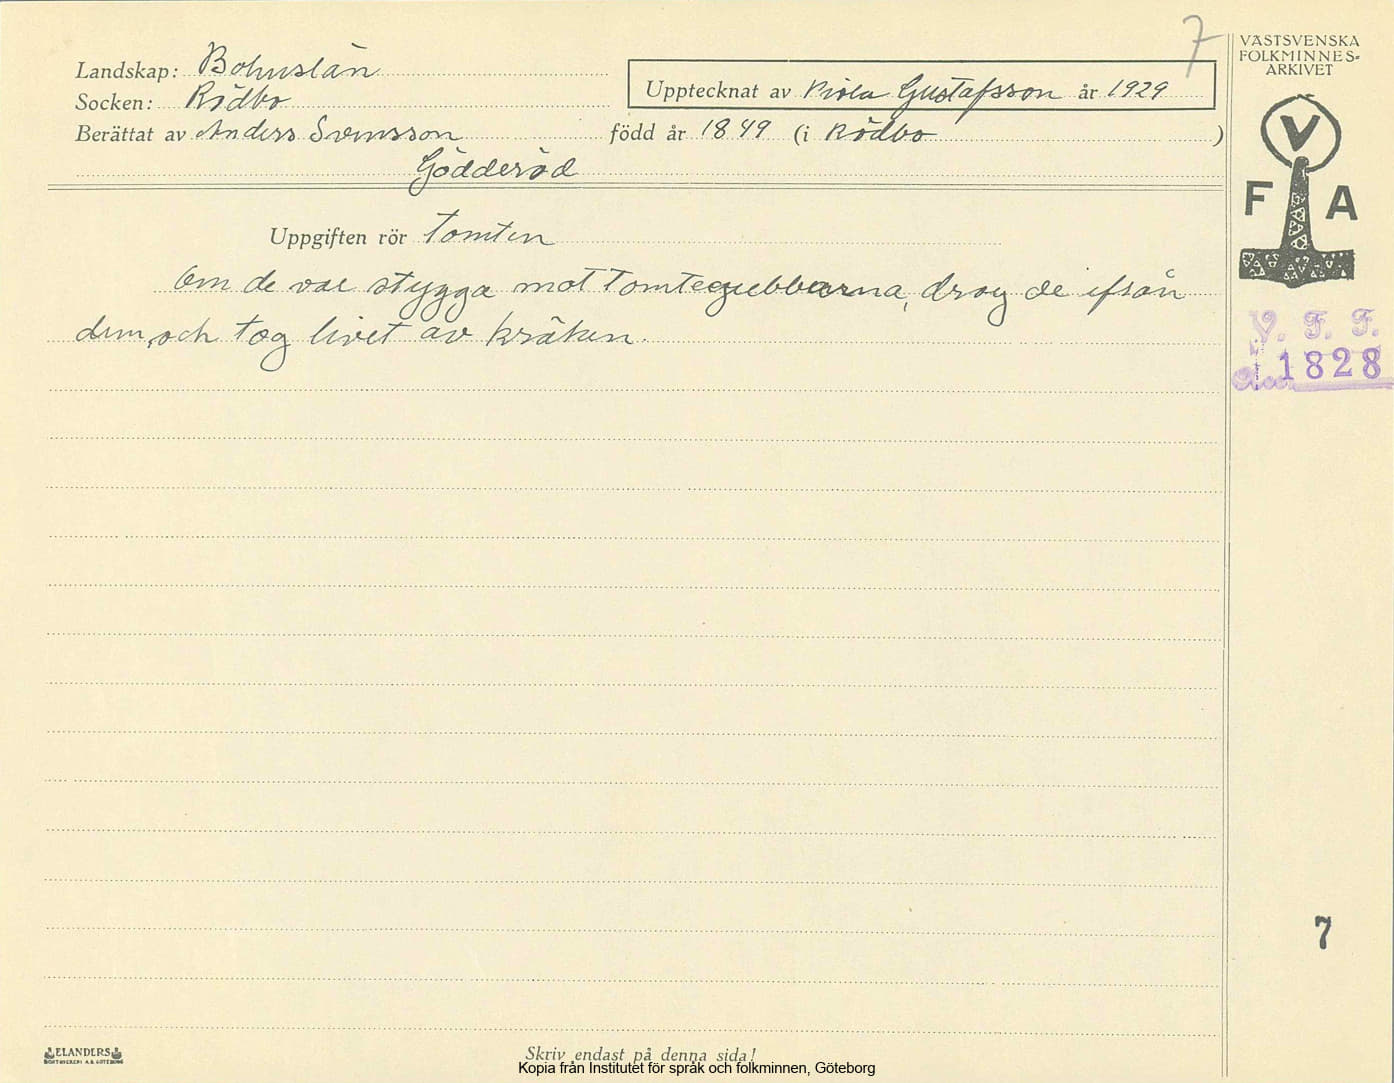 7
VÄSTSVENSKA
FOLKMINNES-
ARKIVET
Landskap: Bohuslän
Socken: Rödbo
Upptecknat av Viola Gustafsson år 1929
Berättat av Anders Svensson född år 1849 (i Rödbo )
Gödderöd
V
F A
Uppgiften rör Tomten
Om de var stygga mot Tomtegubbarna, drog de ifrån
dem, och tog livet av kräken.
V. F. F.
1828
7
ELANDERS
BOKTRYCKERI A.B. GÖTEBORG
Skriv endast på denna sida!
Kopia från Institutet för språk och folkminnen, Göteborg